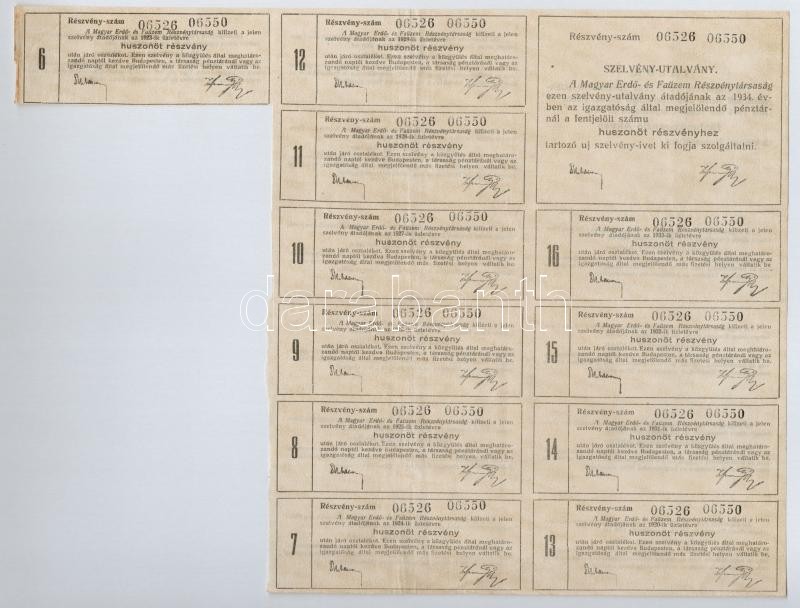 Részvény-szám 06526 06550
A Magyar Erdő- és Faüzem Részvénytársaság kifizeti a jelen
szelvény átadójának az 1923-ik üzletévre
6
huszonöt részvény
után járó osztalékot. Ezen szelvény a közgyülés által meghatáro-
zandó naptól kezdve Budapesten, a társaság pénztáránál vagy az
igazgatóság által megjelölendő más fizetési helyen váltatik be.
Részvény-szám 06526 06550
A Magyar Erdő- és Faüzem Részvénytársaság kifizeti a jelen
szelvény átadójának az 1929-ik üzletévre
12
huszonöt részvény
után járó osztalékot. Ezen szelvény a közgyülés által meghatáro-
zandó naptól kezdve Budapesten, a társaság pénztáránál vagy az
igazgatóság által megjelölendő más fizetési helyen váltatik be.
Részvény-szám 06526 06550
A Magyar Erdő- és Faüzem Részvénytársaság kifizeti a jelen
szelvény átadójának az 1928-ik üzletévre
11
huszonöt részvény
után járó osztalékot. Ezen szelvény a közgyülés által meghatáro-
zandó naptól kezdve Budapesten, a társaság pénztáránál vagy az
igazgatóság által megjelölendő más fizetési helyen váltatik be.
Részvény-szám 06526 06550
A Magyar Erdő- és Faüzem Részvénytársaság kifizeti a jelen
szelvény átadójának az 1927-ik üzletévre
10
huszonöt részvény
után járó osztalékot. Ezen szelvény a közgyülés által meghatáro-
zandó naptól kezdve Budapesten, a társaság pénztáránál vagy az
igazgatóság által megjelölendő más fizetési helyen váltatik be.
Részvény-szám 06526 06550
A Magyar Erdő- és Faüzem Részvénytársaság kifizeti a jelen
szelvény átadójának az üzletévre
9
huszonöt részvény
után járó osztalékot. Ezen szelvény a közgyülés által meghatáro-
zandó naptól kezdve Budapesten, a társaság pénztáránál vagy az
igazgatóság által megjelölendő más fizetési helyen váltatik be.
Részvény-szám 06526 06550
A Magyar Erdő- és Faüzem Részvénytársaság kifizeti a jelen
szelvény átadójának az 1925-ik üzletévre
8
huszonöt részvény
után járó osztalékot. Ezen szelvény a közgyülés által meghatáro-
zandó naptól kezdve Budapesten, a társaság pénztáránál vagy az
igazgatóság által megjelölendő más fizetési helyen váltatik be.
Részvény-szám 06526 06550
A Magyar Erdő- és Faüzem Részvénytársaság kifizeti a jelen
szelvény átadójának az 1924-ik üzletévre
7
huszonöt részvény
után járó osztalékot. Ezen szelvény a közgyülés által meghatáro-
zandó naptól kezdve Budapesten, a társaság pénztáránál vagy az
igazgatóság által megjelölendő más fizetési helyen váltatik be.
Részvény-szám 06526 06550
SZELVÉNY-UTALVÁNY.
A Magyar Erdő- és Faüzem Részvénytársaság
ezen szelvény-utalvány átadójának az 1934. év-
ben az igazgatóság által megjelölendő pénztár-
nál a fentjelölt számu
huszonöt részvényhez
tartozó uj szelvény-ivet ki fogja szolgáltatni.
Részvény-szám 06526 06550
A Magyar Erdő- és Faüzem Részvénytársaság kifizeti a jelen
szelvény átadójának az 1933-ik üzletévre
16
huszonöt részvény
után járó osztalékot. Ezen szelvény a közgyülés által meghatáro-
zandó naptól kezdve Budapesten, a társaság pénztáránál vagy az
igazgatóság által megjelölendő más fizetési helyen váltatik be.
Részvény-szám 06526 06550
A Magyar Erdő- és Faüzem Részvénytársaság kifizeti a jelen
szelvény átadójának az 1932-ik üzletévre
15
huszonöt részvény
után járó osztalékot. Ezen szelvény a közgyülés által meghatáro-
zandó naptól kezdve Budapesten, a társaság pénztáránál vagy az
igazgatóság által megjelölendő más fizetési helyen váltatik be.
Részvény-szám 06526 06550
A Magyar Erdő- és Faüzem Részvénytársaság kifizeti a jelen
szelvény átadójának az 1931-ik üzletévre
14
huszonöt részvény
után járó osztalékot. Ezen szelvény a közgyülés által meghatáro-
zandó naptól kezdve Budapesten, a társaság pénztáránál vagy az
igazgatóság által megjelölendő más fizetési helyen váltatik be.
Részvény-szám 06526 06550
A Magyar Erdő- és Faüzem Részvénytársaság kifizeti a jelen
szelvény átadójának az 1930-ik üzletévre
13
huszonöt részvény
után járó osztalékot. Ezen szelvény a közgyülés által meghatáro-
zandó naptól kezdve Budapesten, a társaság pénztáránál vagy az
igazgatóság által megjelölendő más fizetési helyen váltatik be.
darabanth